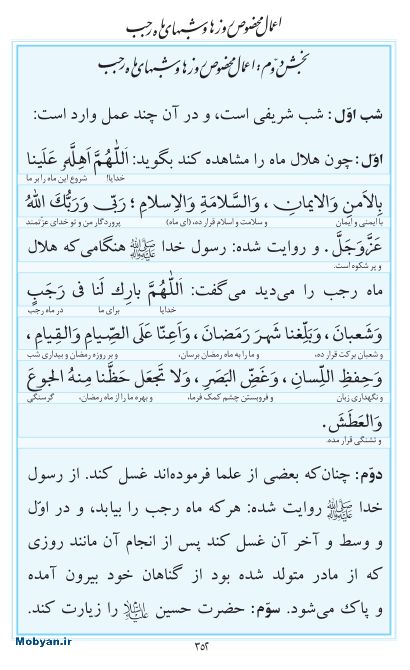 اعمال مخصوص روزها و شبهای ماه رجب
بخش دوّم: اعمال مخصوص روزها و شبهای ماه رجب
شب اوّل: شب شریفی است، و در آن چند عمل وارد است:
اوّل: چون هلال ماه را مشاهده کند بگوید: اَللّٰهُمَّ اَهِلَّهُ عَلَینا
خدایا! شروع این ماه را بر ما
بِالاَمنِ وَالایمانِ ، وَالسَّلامَةِ وَالاِسلامِ ؛ رَبّی وَرَبُّکَ اللهُ
با ایمنی و ایمان و سلامت و اسلام قرار ده، (ای ماه) پروردگار من و تو خدای عزّتمند
عَزَّوَجَلَّ . و روایت شده: رسول خدا ﷺ هنگامی‌که هلال
و پر شکوه است.
ماه رجب را می‌دید می‌گفت: اَللّٰهُمَّ بارِک لَنا فی رَجَبٍ
خدایا برای ما در ماه رجب
وَشَعبانَ ، وَبَلِّغنا شَهرَ رَمَضانَ ، وَاَعِنّا عَلَی الصِّیامِ وَالقِیامِ ،
و شعبان برکت قرار ده، و ما را به ماه رمضان برسان، و بر روزه رمضان و بیداری شب
وَحِفظِ اللِّسانِ ، وَغَضِّ البَصَرِ ، وَلا تَجعَل حَظَّنا مِنهُ الجوعَ
و نگهداری زبان و فروبستن چشم کمک فرما، و بهره ما را از ماه رمضان، گرسنگی
وَالعَطَشَ.
و تشنگی قرار مده.
دوّم: چنان‌که بعضی از علما فرموده‌اند غسل کند. از رسول
خدا ﷺ روایت شده: هرکه ماه رجب را بیابد، و در اوّل
و وسط و آخر آن غسل کند پس از انجام آن مانند روزی
که از مادر متولد شده بود از گناهان خود بیرون آمده
و پاک می‌شود. سوّم: حضرت حسین علیه‌السلام را زیارت کند.
۳۵۲
Mobyan.ir